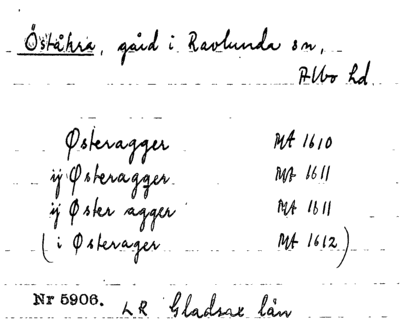 Öståkra, gård i Ravlunda sn,
Albo hd.
Østeragger MA 1610
ij Østeragger MA 1611
ij Øster agger MA 1611
(i Østerager MA 1612)
Nr 5906. LR Gladsax län